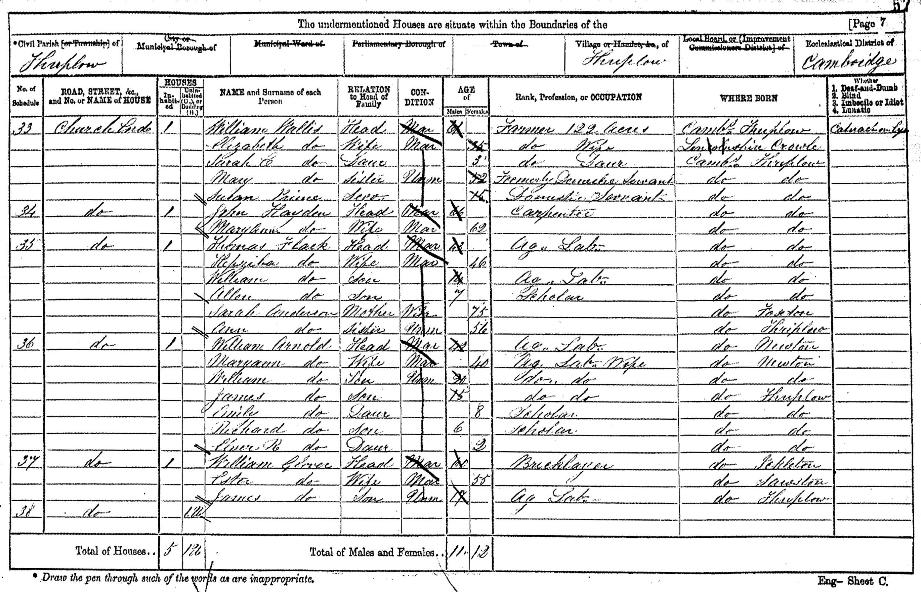 57
The undermentioned Houses are situate within the Boundaries of the [Page 7
*Civil Parish [or Township] of City or Municipal Borough of Municipal Ward of Parliamentary Borough of Town of Village or Hamlet, &c., of Local Board, or [Improvement Commissioners District] of Ecclesiastical District of
Thriplow Thriplow Cambridge
No. of Schedule ROAD, STREET, &c., and No. or NAME of HOUSE HOUSES Inhabited Uninhabited (U.), or Building (B.) NAME and Surname of each Person RELATION to Head of Family CONDITION AGE of Males Females Rank, Profession, or OCCUPATION WHERE BORN Whether 1. Deaf-and-Dumb 2. Blind 3. Imbecile or Idiot 4. Lunatic
33 Church 1 William Wallis Head Mar Farmer 122 Acres Cambs Thriplow
Elizabeth do Wife Mar do Wife Crowle
Sarah E do Daur 3 do Daur Cambs Thriplow
Mary do Sister Unm Formerly Domestic Servant do do
Susan Prime Serv Domestic Servant do do
34 do 1 John Haydon Head Mar Carpenter do do
Maryann do Wife Mar 62 do do
35 do 1 Thomas Flack Head Mar Ag. Lab. do do
do Wife Mar 46 do do
William do Son Ag. Lab. do do
Allen do Son 7 Scholar do do
Sarah Anderson Mother 75 do Foxton
Ann do Sister Unm 56 do Thriplow
36 do 1 William Arnold Head Mar 42 Ag. Lab. do Newton
Maryann do Wife Mar 40 Ag. Lab. Wife do Newton
William do Son Unm 20 do. do do do
James do Son 15 do do do Thriplow
Emily do Daur 8 Scholar do do
Richard do Son 6 Scholar do do
do Daur 2 do do
37 do 1 William Glover Head Mar Bricklayer do
Ester do Wife Mar 55 do Sawston
James do Son Unm Ag Lab. do Thriplow
38 do
Total of Houses.. 5 Total of Males and Females.. 11 12
* Draw the pen through such of the words as are inappropriate. Eng— Sheet C.